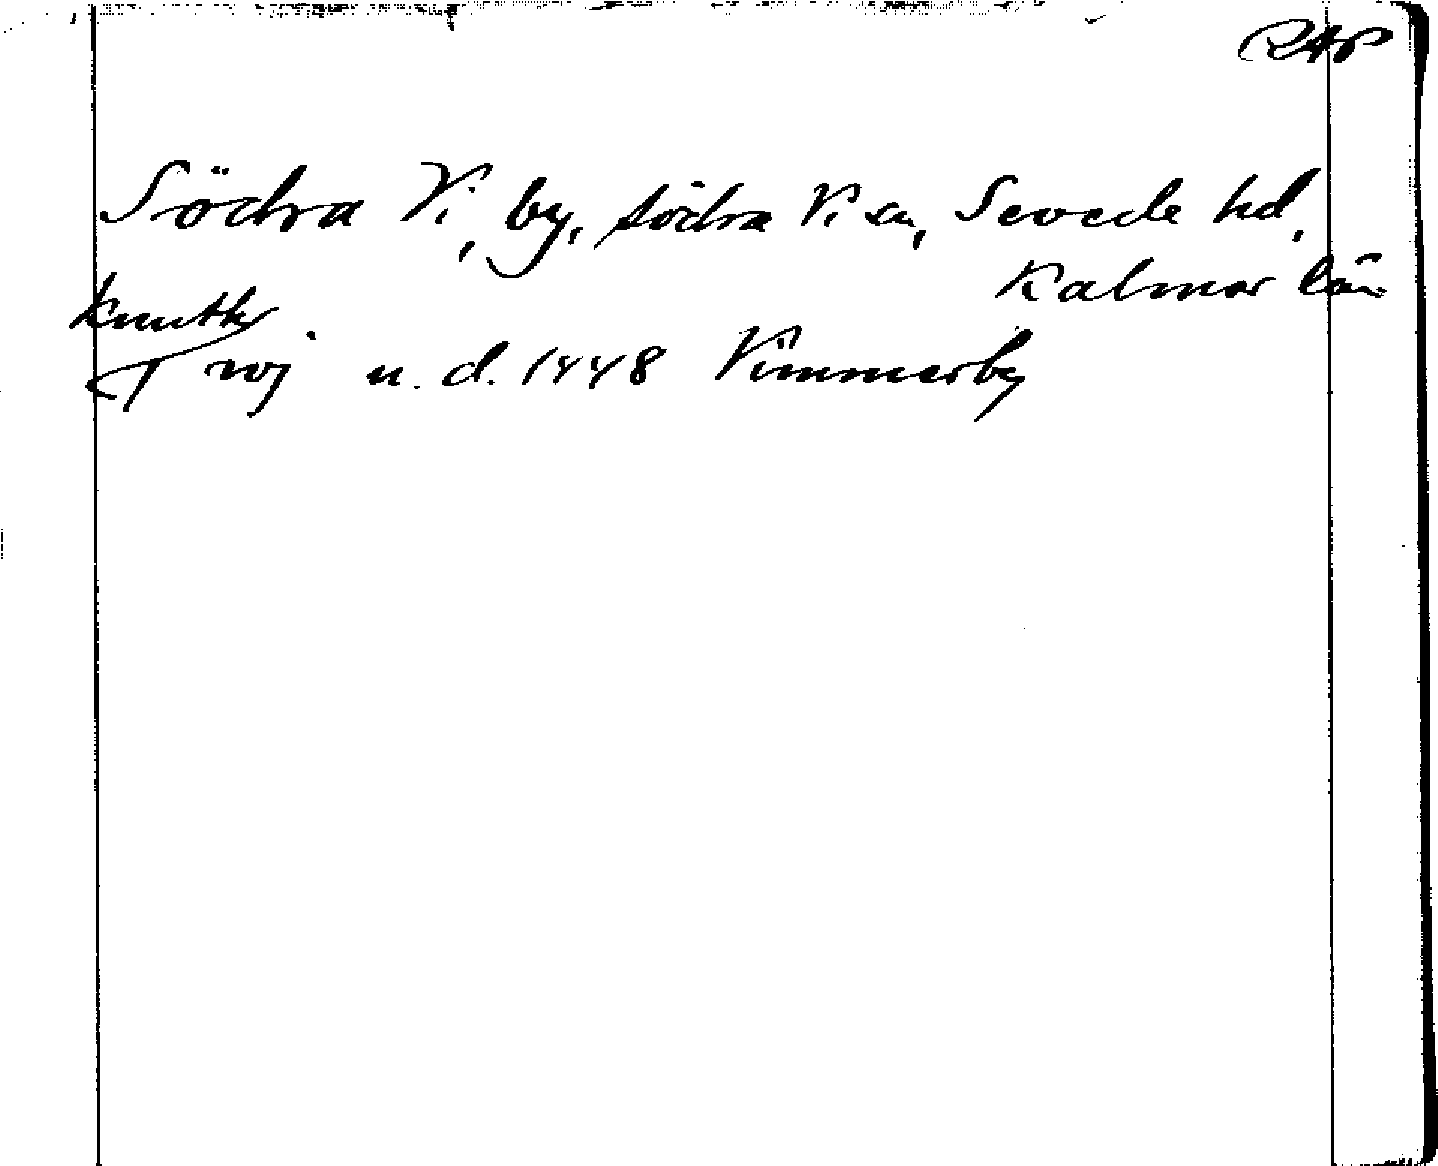 RAP
Södra Vi, by, Södra Vi sn, Sevede hd,
Kalmar län
knuthz
wj u.d. 1448 Vimmerby